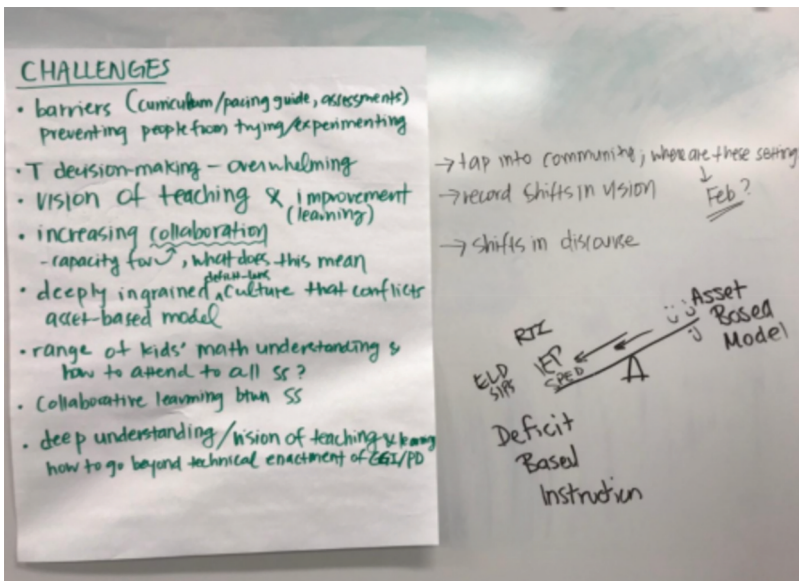 CHALLENGES
• barriers (curriculum/pacing guide, assessments)
preventing people from trying/experimenting
• T decision-making – overwhelming
• vision of teaching & improvement
(learning)
• increasing collaboration
- capacity for, what does this mean
• deeply ingrained culture that conflicts
asset-based model
• range of kids' math understanding &
how to attend to all ss?
• Collaborative learning btwn SS
• deep understanding/vision of teaching & learning
how to go beyond technical enactment of CGI/PD
→ tap into community; where are these
→ record shifts in vision
Feb?
→ shifts in discourse
Asset
Based
Model
RTI
IEP
SPED
ELD
Deficit
Based
Instruction